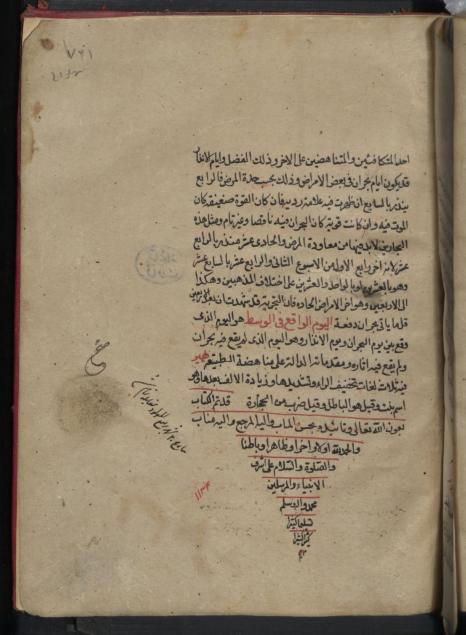 احد المتكافئين والمتناهضين على الاخر وذلك الفصل وايام الانذار
قد يكون ايام بحران فى بعض الامراض وذلك بحسب حدة المرض فالرابع
ينذر بالسابع ان ظهرت فيه علامة ردية فان كان القوة ضعيفة كان
الموت فيه وان كانت قوية كان البحران فيه ناقصا وغير تام ومثل هذه
البحارين لابد فيها من معاودة المرض والحادى عشر منذر بالرابع
عشر لانه اخر رابع الاول من الاسبوع الثانى والرابع عشر بالسابع عشر
وهو بالعشرين او بالواحد والعشرين على اختلاف المذهبين وهكذا
الى الاربعين وهو اخر الامراض الحادة فان التجربة قد شهدت ان بعد الاربعين
قلما ياتى بحران دفعة اليوم الواقع فى الوسط هو اليوم الذى
وقع بين يوم البحران ويوم الانذار وهو اليوم الذى لم يقع فيه بحران
ولم يقع فيه اثاره ومقدماته الدالة على مناهضة الطبيعة
فيه ثلاث لغات تخفيف الراء وتشديدها وزيادة الالف بعدها فهو
اسم بنت وقيل هو الباطل وقيل ضرب من الحجارة قد تم الكتاب
بعون الله تعالى وتاييده وبحسن الماب واليه المرجع واليه متاب
والحمد لله اولا واخرا وظاهرا وباطنا
والصلوة والسلام على اشرف
الانبياء والمرسلين
محمد واله وسلم
تسليما كثيرا
كثيرا
١١٣٤
٧٦١